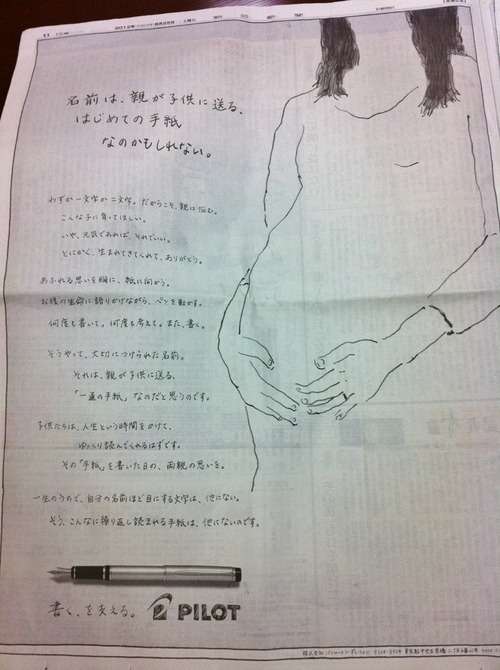 11
2012年
朝日新聞
名前は、親が子供に送る、
はじめての手紙
なのかもしれない。
わずか一文字か二文字。だからこそ、親は悩む。
こんな子に育ってほしい。
いや、元気であれば、それでいい。
とにかく、生まれてきてくれて、ありがとう。
あふれる思いを胸に、紙に向かう。
お腹の生命に語りかけながら、ペンを動かす。
何度も書いて。何度も考えて。また、書く。
そうやって、大切につけられた名前。
それは、親が子供に送る、
「一通の手紙」なのだと思うのです。
子供たちは、人生という時間をかけて、
ゆっくり読んでくれるはずです。
その「手紙」を書いた日の、両親の思いを。
一生のうちで、自分の名前ほど目にする文字は、他にない。
そう、こんなに繰り返し読まれる手紙は、他にないのです。
書く、を支える。 PILOT
株式会社パイロットコーポレーション